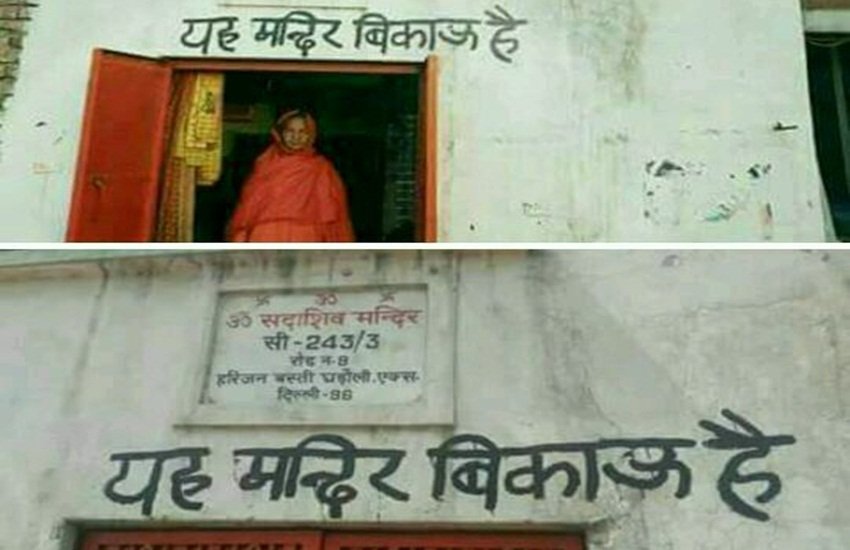 यह मन्दिर बिकाऊ है
ॐ सदाशिव मन्दिर
सी-243/3
रोड न-9
हरिजन बस्ती घड़ौली.एक्स-
दिल्ली-96
यह मन्दिर बिकाऊ है